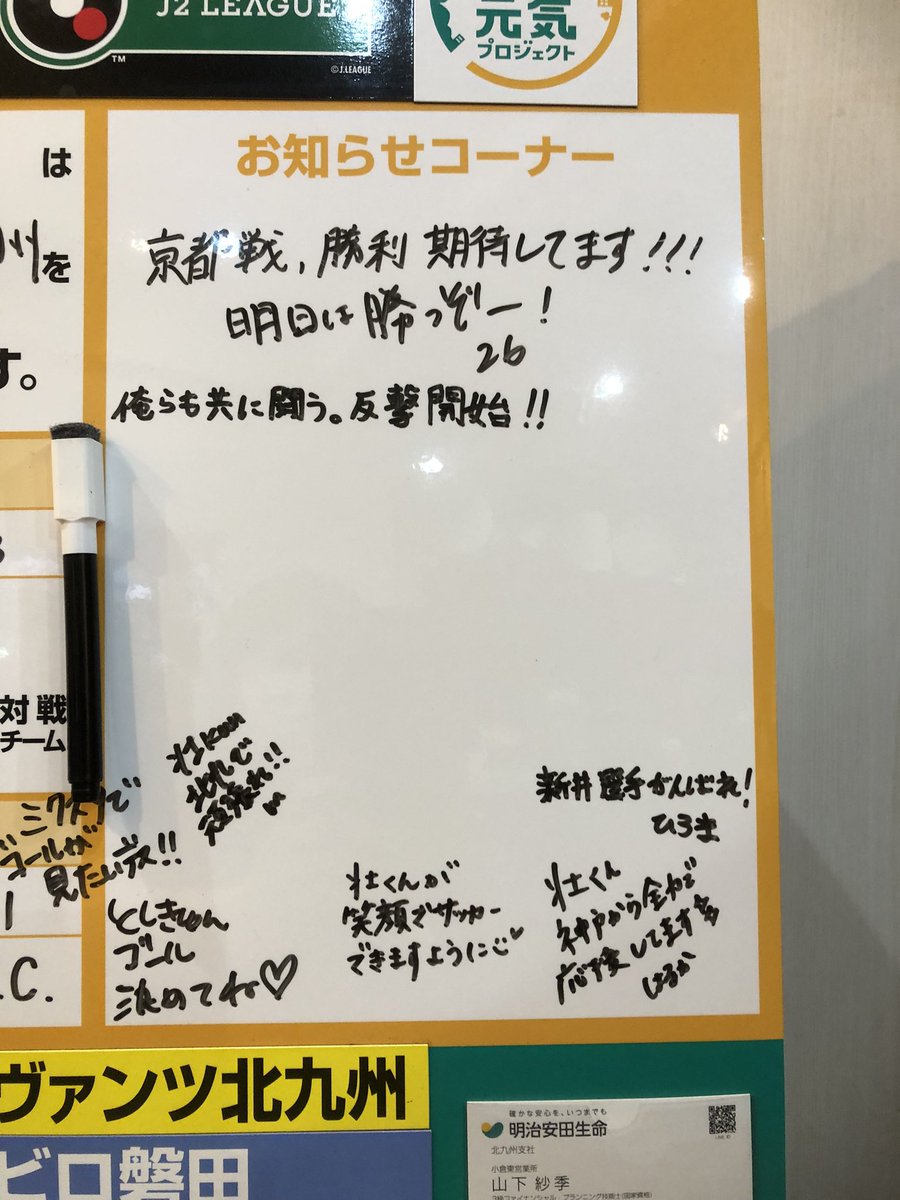 J2 LEAGUE
TM
©J.LEAGUE
元気
プロジェクト
は
州を
す。
お知らせコーナー
京都戦、勝利期待してます!!!
明日は勝つぞー!
26
俺らも共に闘う。反撃開始!!
対戦
チーム
壮Kun
北九で
頑張れ!!
ミクスタで
ゴールが
見たい!!
新井選手がんばれ!
ひろき
としきゅん
ゴール
決めてね♡
壮くんが
笑顔でサッカー
できますように
壮くん
神戸から全力で
応援してます
はるか
.C.
ヴァンツ北九州
ビロ磐田
確かな安心を、いつまでも
明治安田生命
LINE ID
北九州支社
小倉東営業所
山下 紗季
3級ファイナンシャル・プランニング技能士(国家資格)